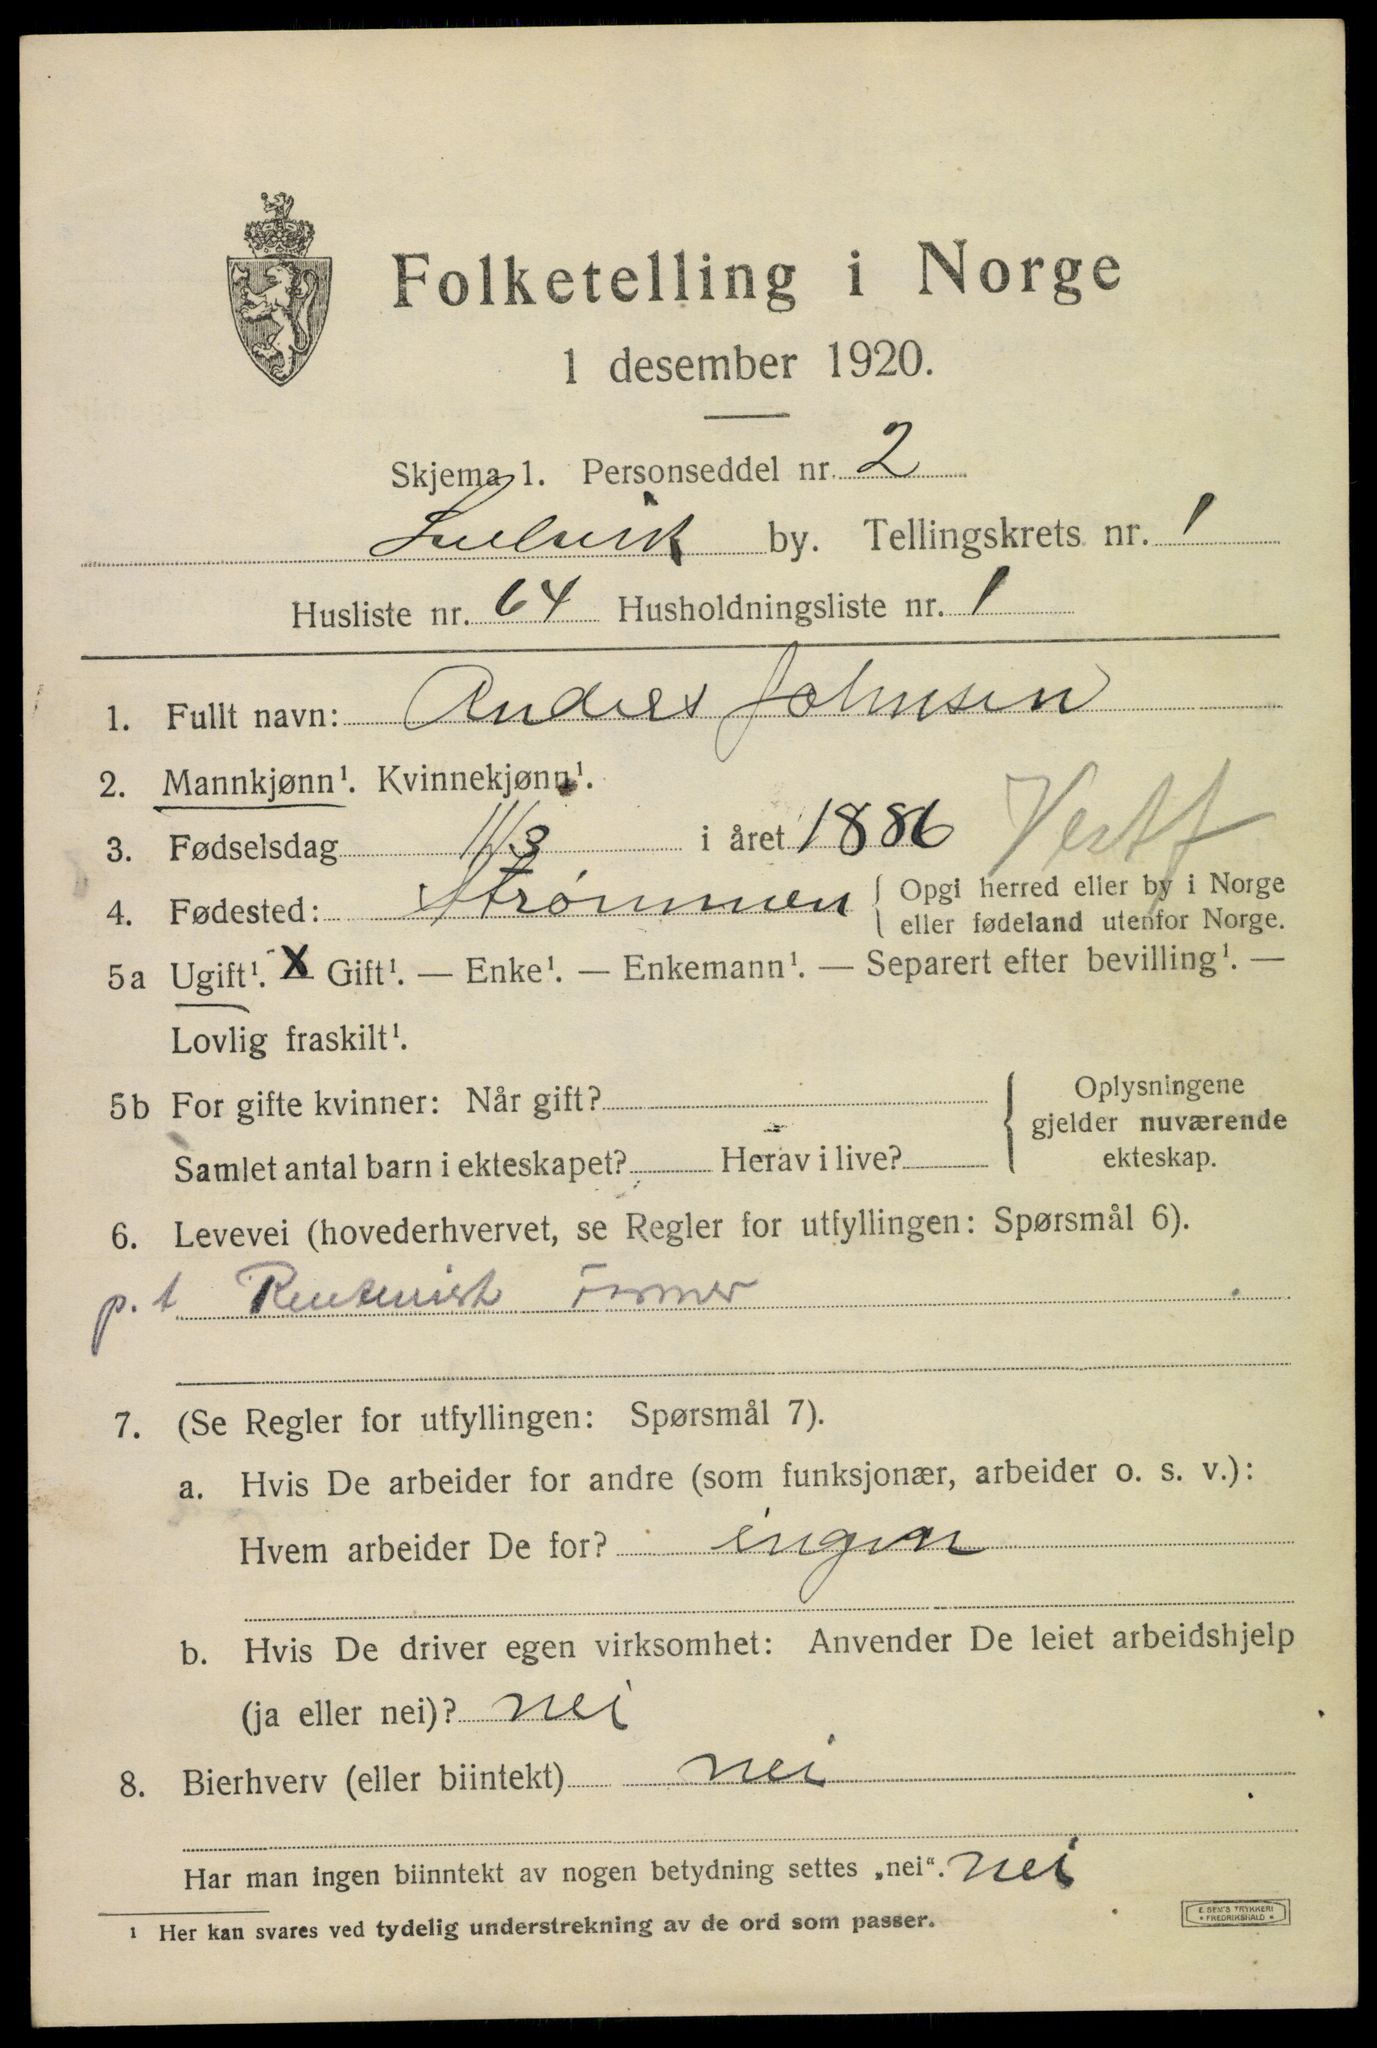 Folketelling i Norge
1 desember 1920.
Skjema 1. Personseddel nr. 2
Svelvik by. Tellingskrets nr. 1
Husliste nr. 64 Husholdningsliste nr. 1
1. Fullt navn: Anders Johnsen
2. Mannkjønn¹. Kvinnekjønn¹.
3. Fødselsdag 11/3 i året 1886
4. Fødested: Strømmen { Opgi herred eller by i Norge
eller fødeland utenfor Norge.
5a Ugift¹. X Gift¹. — Enke¹. — Enkemann¹. — Separert efter bevilling¹. —
Lovlig fraskilt¹.
5b For gifte kvinner: Når gift?
Samlet antal barn i ekteskapet? Herav i live?
{ Oplysningene
gjelder nuværende
ekteskap.
6. Levevei (hovederhvervet, se Regler for utfyllingen: Spørsmål 6).
p. t Rentenist Farmer
7. (Se Regler for utfyllingen: Spørsmål 7).
a. Hvis De arbeider for andre (som funksjonær, arbeider o. s. v.):
Hvem arbeider De for? ingen
b. Hvis De driver egen virksomhet: Anvender De leiet arbeidshjelp
(ja eller nei)? nei
8. Bierhverv (eller biintekt) nei
Har man ingen biinntekt av nogen betydning settes „nei“. nei
¹ Her kan svares ved tydelig understrekning av de ord som passer.
E. SEM'S TRYKKERI
• FREDRIKSHALD •